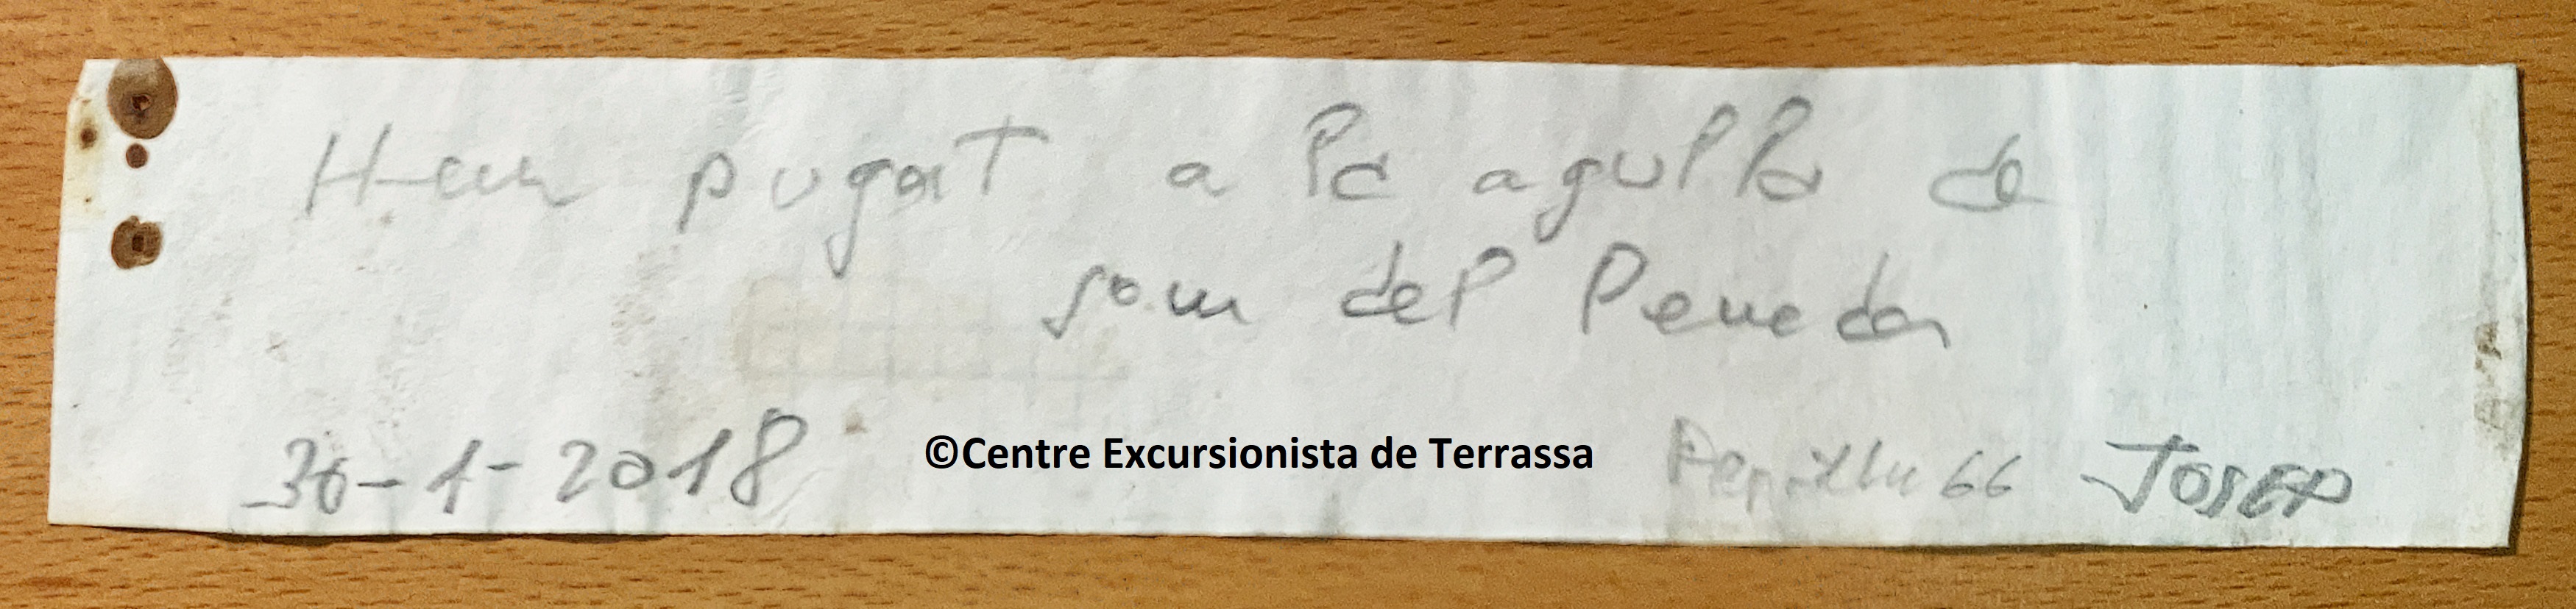 Hem pugat a la agulla de
som del Peneda
30-1-2018 ©Centre Excursionista de Terrassa 66 Josep